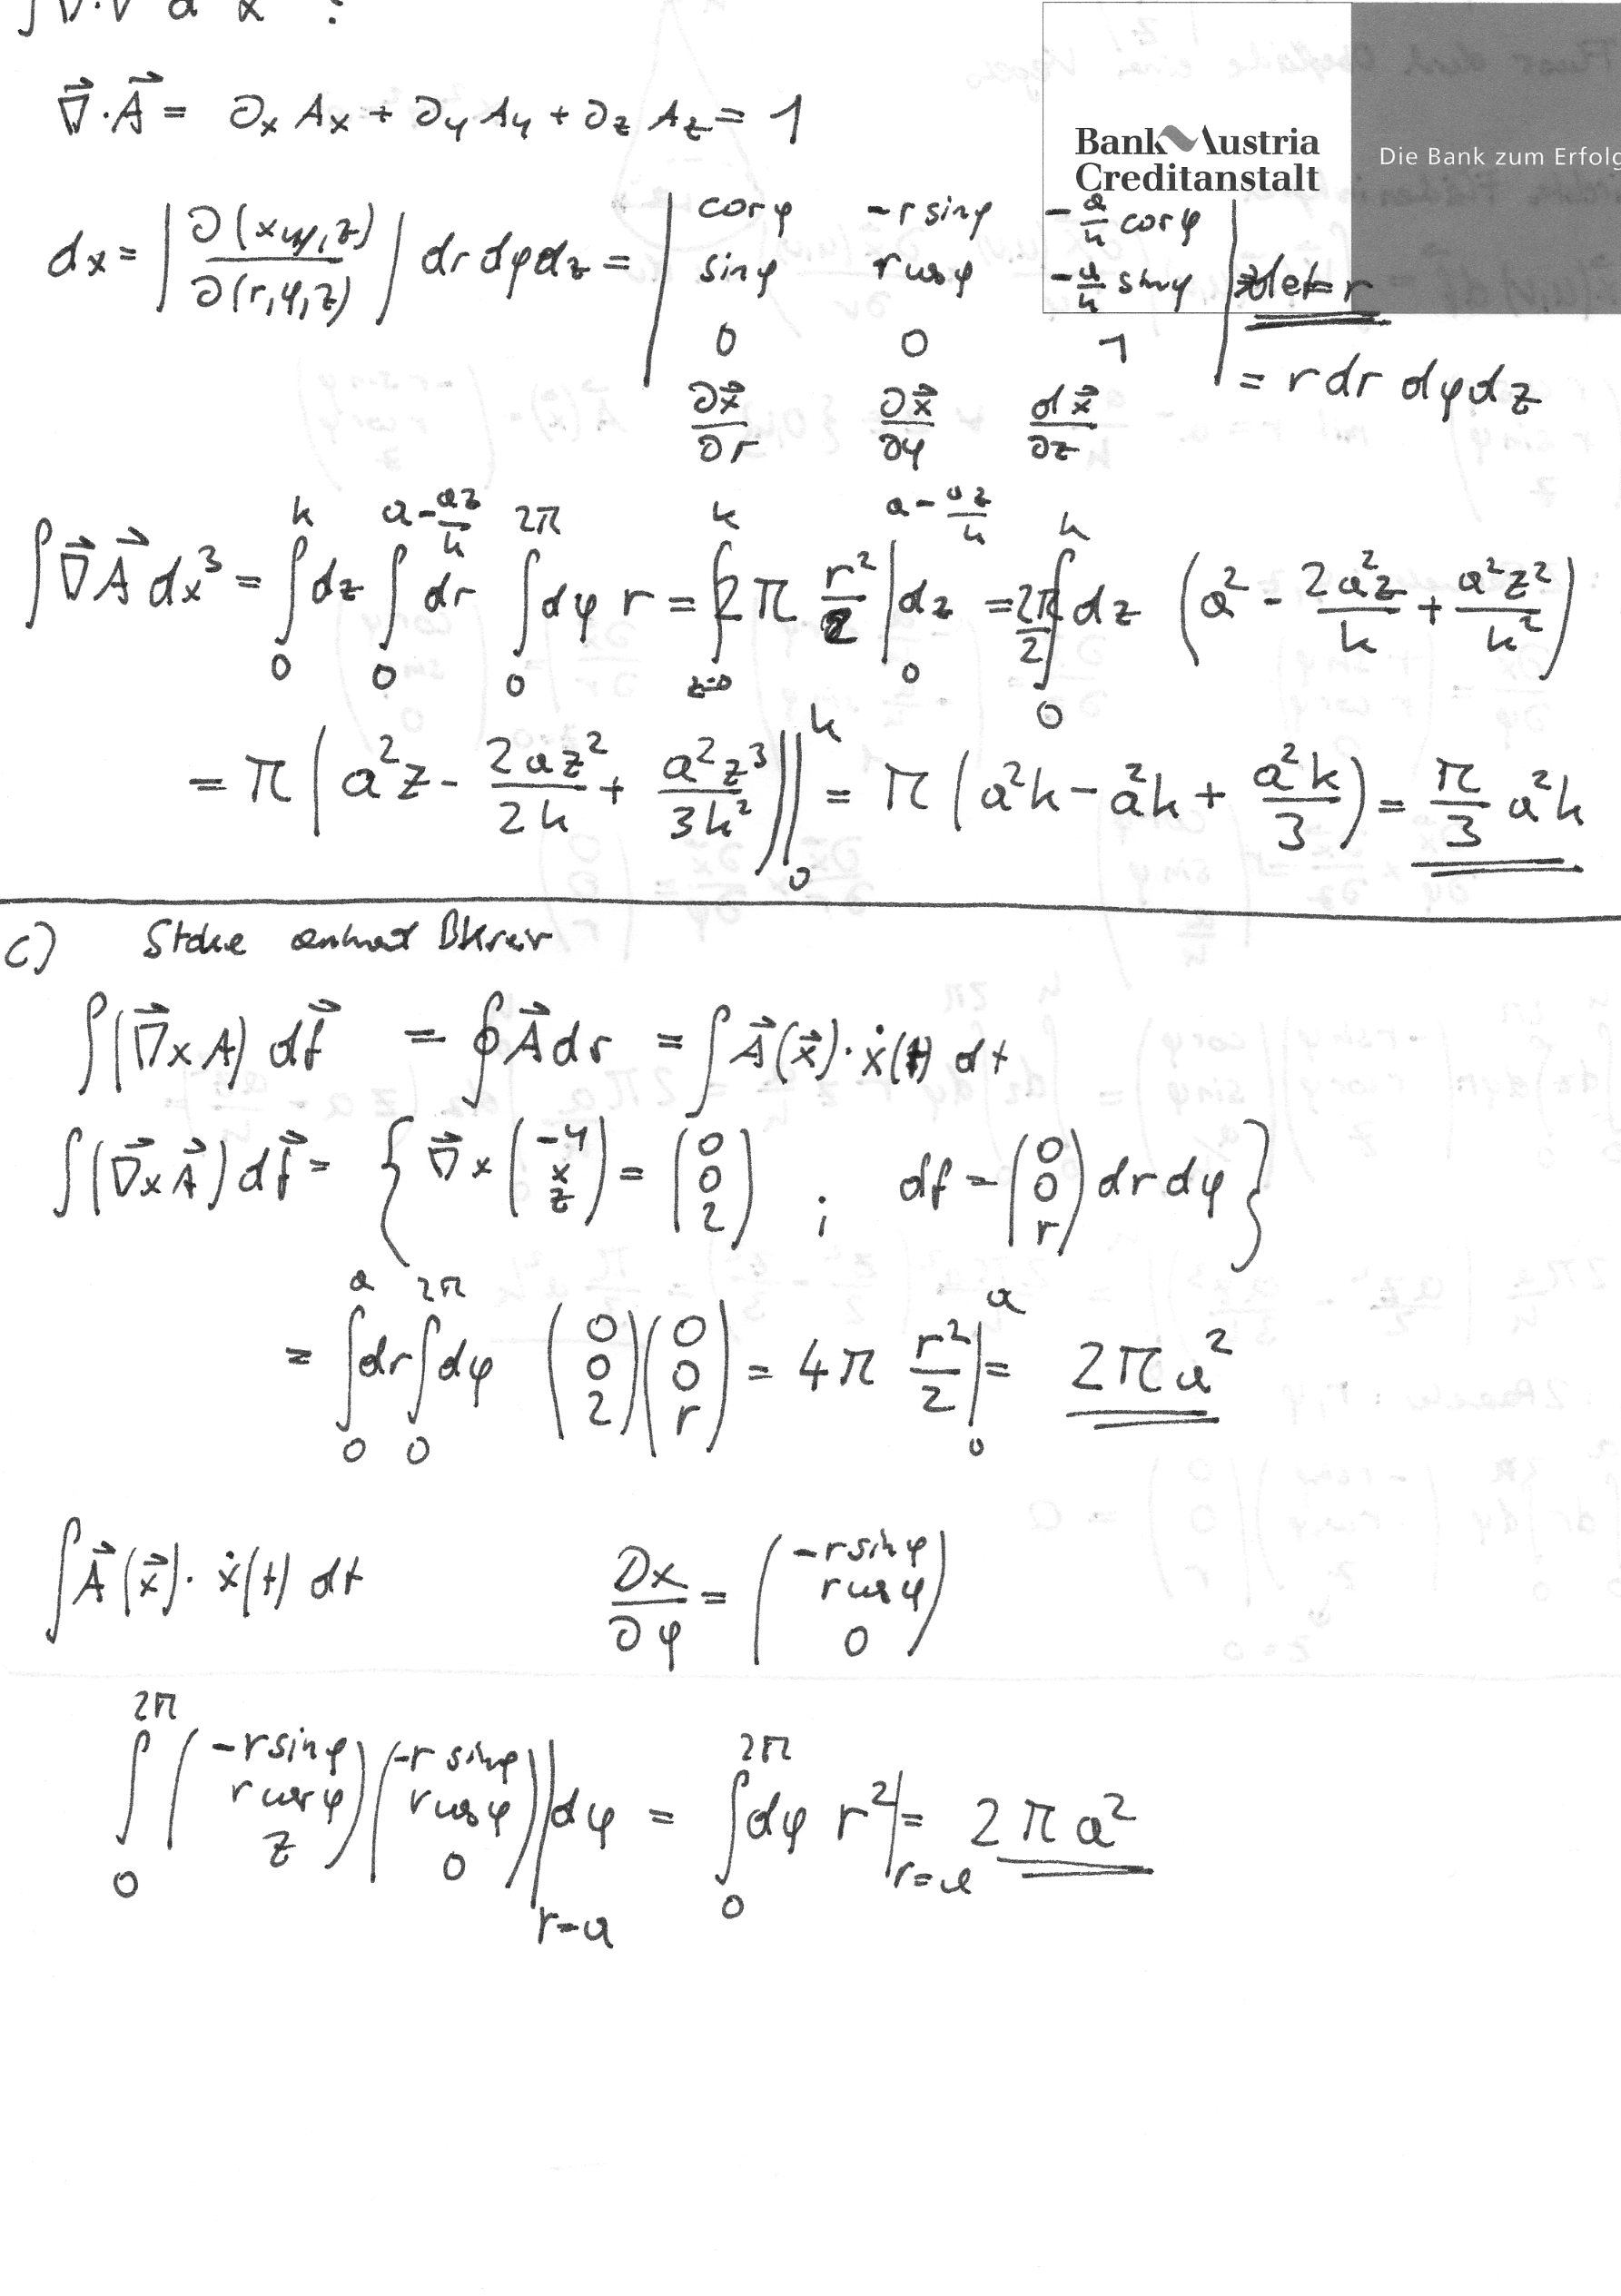 ∫∇·V d x :
∇⃗·A⃗ = ∂x Ax + ∂y Ay + ∂z Az = 1
Bank Austria
Creditanstalt
Die Bank zum Erfolg
dx = | ∂(x,y,z) / ∂(r,φ,z) | dr dφ dz = | cosφ -r sinφ -a/h cosφ |
| sinφ r cosφ -a/h sinφ | det = r
| 0 0 1 | = r dr dφ dz
∂x⃗/∂r ∂x⃗/∂φ ∂x⃗/∂z
∫ ∇⃗A⃗ dx³ = ∫₀^h dz ∫₀^(a - az/h) dr ∫₀^2π dφ r = ∫_(z=0)^h 2π r²/2 |₀^(a - az/h) dz = 2π/2 ∫₀^h dz (a² - 2a²z/h + a²z²/h²)
= π ( a²z - 2az²/2h + a²z³/3h² ) |₀^h = π (a²h - a²h + a²h/3) = π/3 a²h
c) Stoke
∫(∇⃗×A) df⃗ = ∮A⃗ dr = ∫ A⃗(x⃗)·ẋ(t) dt
∫(∇⃗×A⃗) df⃗ = { ∇⃗ × (-y x z) = (0 0 2) ; df = (0 0 r) dr dφ }
= ∫₀^a dr ∫₀^2π dφ (0 0 2)(0 0 r) = 4π r²/2 |₀^a = 2πa²
∫ A⃗(x⃗)·ẋ(t) dt ∂x/∂φ = (-r sinφ r cosφ 0)
∫₀^2π (-r sinφ r cosφ z)(-r sinφ r cosφ 0) |_(r=a) dφ = ∫₀^2π dφ r² |_(r=a) = 2πa²